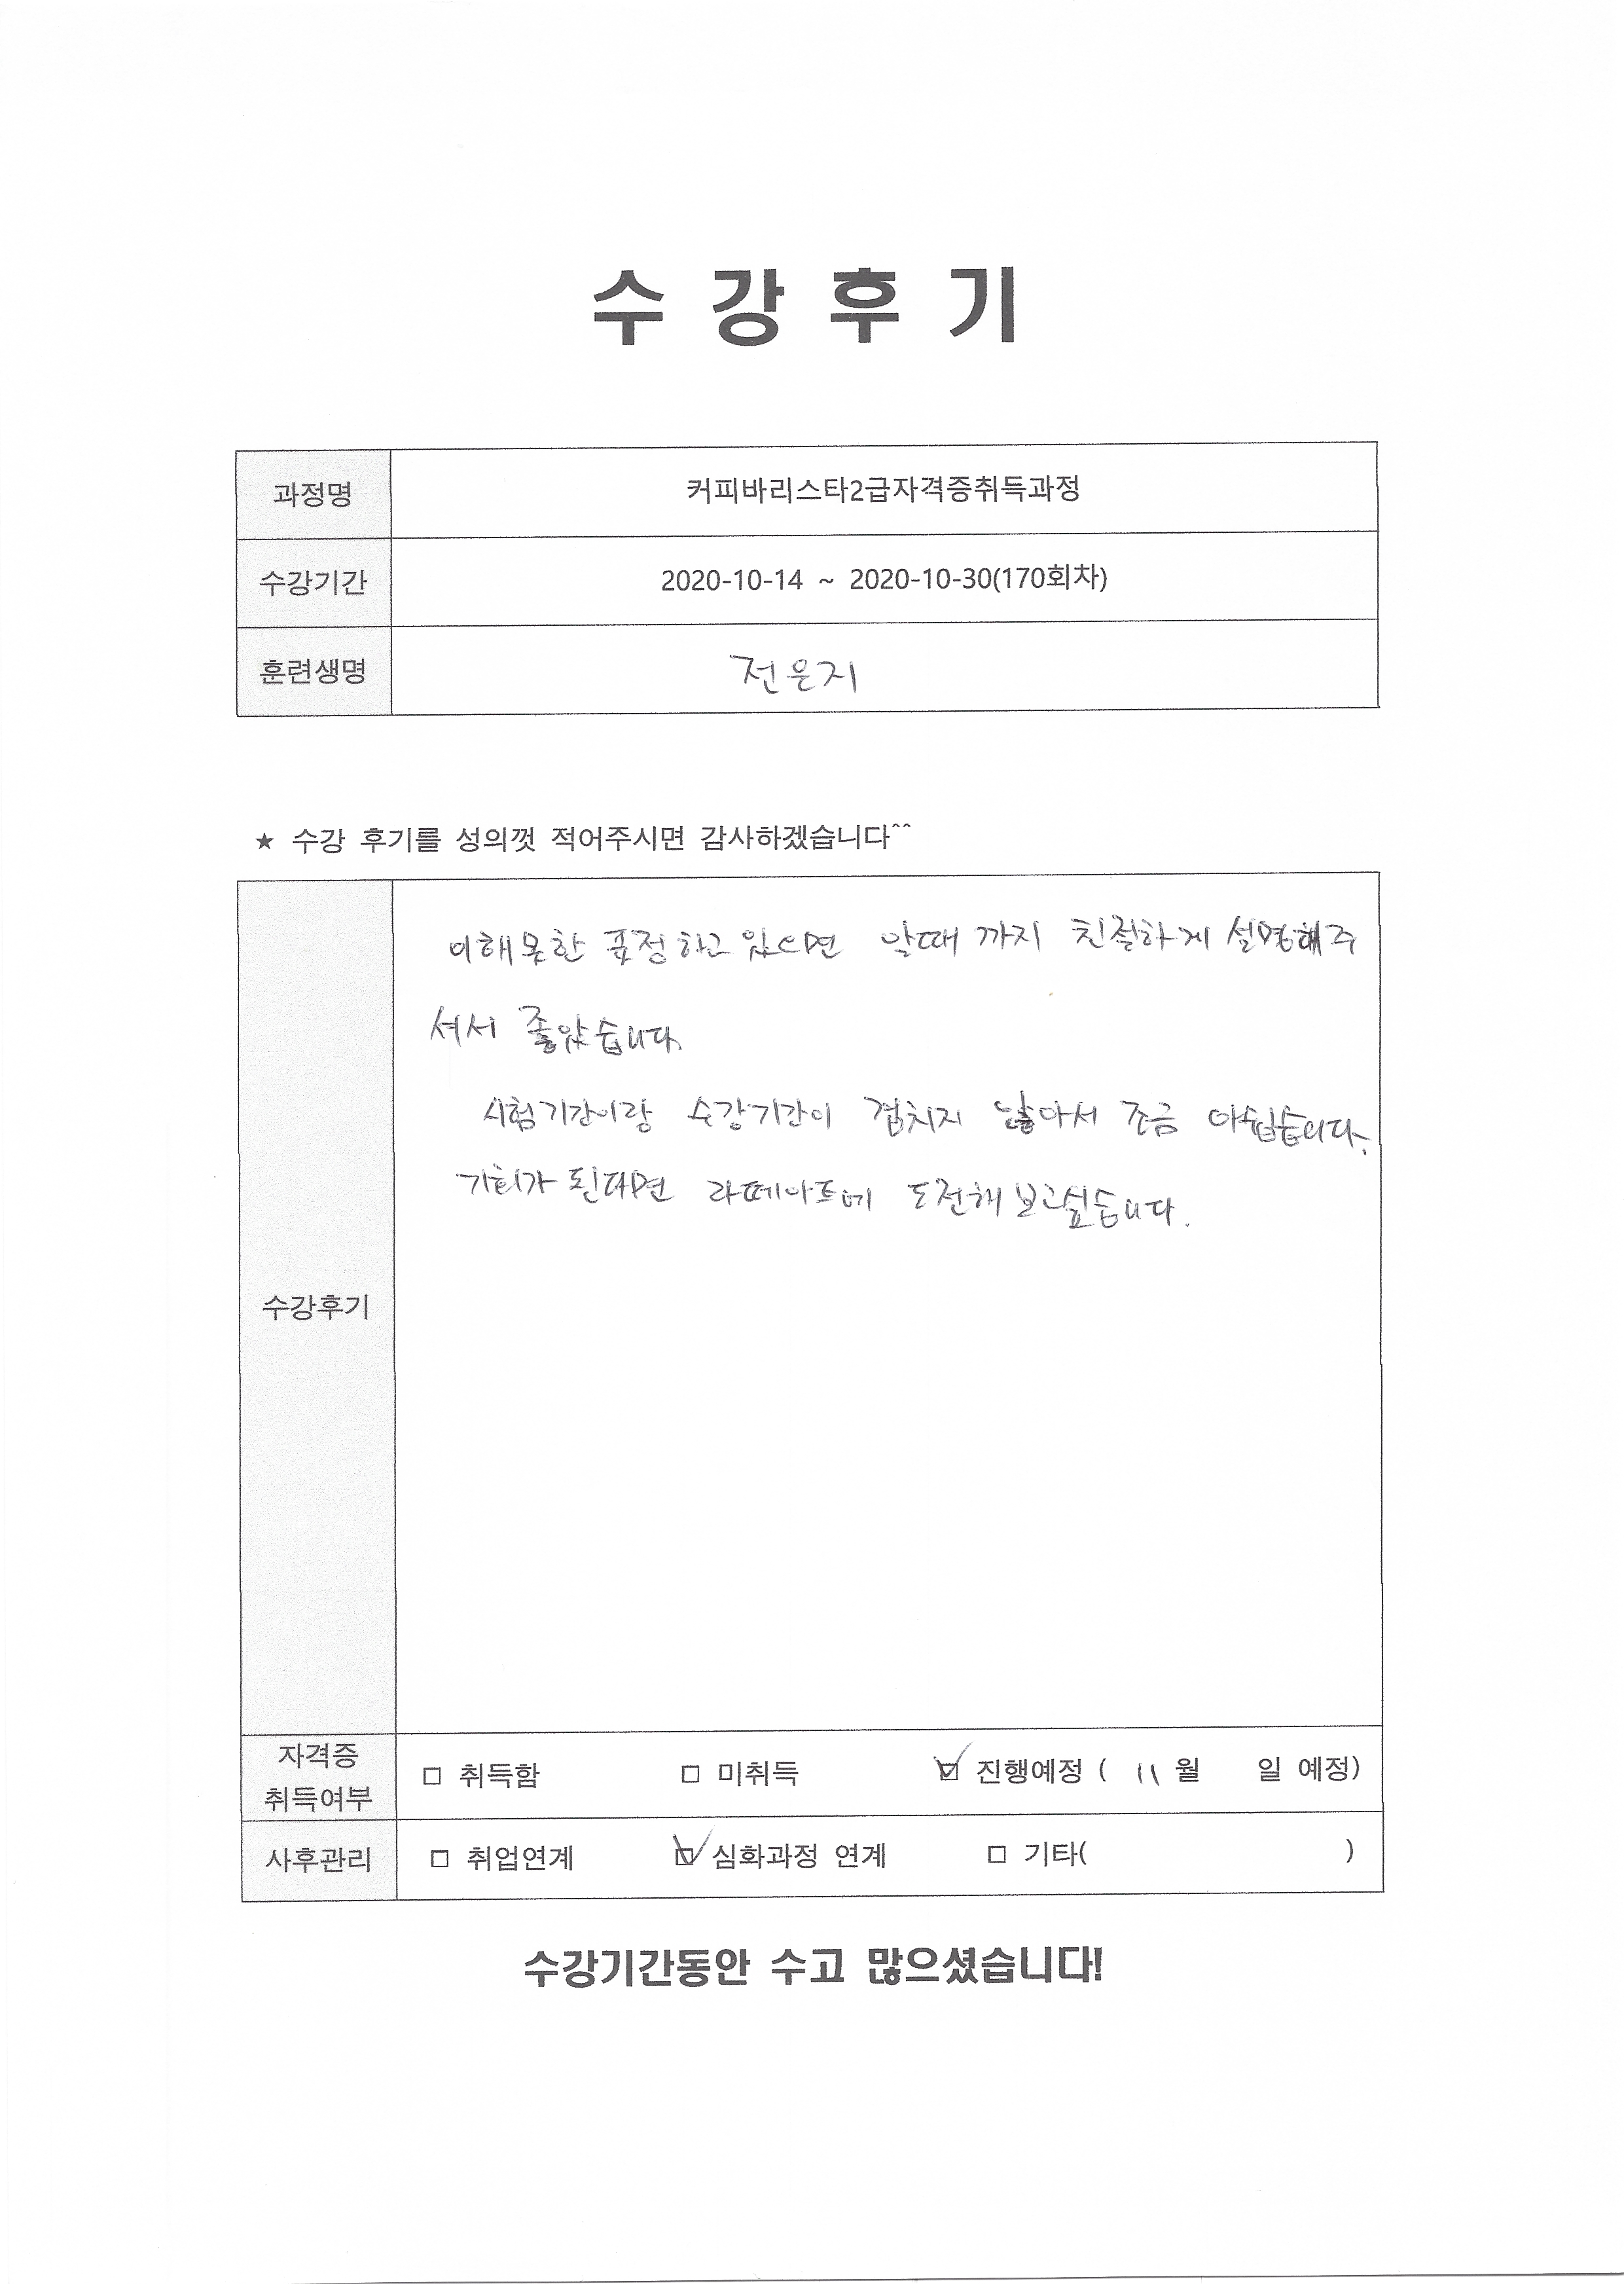 수 강 후 기
과정명 커피바리스타2급자격증취득과정
수강기간 2020-10-14 ~ 2020-10-30(170회차)
훈련생명 전은지
★ 수강 후기를 성의껏 적어주시면 감사하겠습니다^^
이해못한 표정하고 있으면 알때 까지 친절하게 설명해주
셔서 좋았습니다.
시험기간이랑 수강기간이 겹치지 않아서 조금 아쉽습니다.
기회가 된다면 라떼아트에 도전해 보고싶습니다.
수강후기
자격증
취득여부
□ 취득함 □ 미취득 ☑ 진행예정 ( 11 월 일 예정)
사후관리 □ 취업연계 ☑ 심화과정 연계 □ 기타( )
수강기간동안 수고 많으셨습니다!